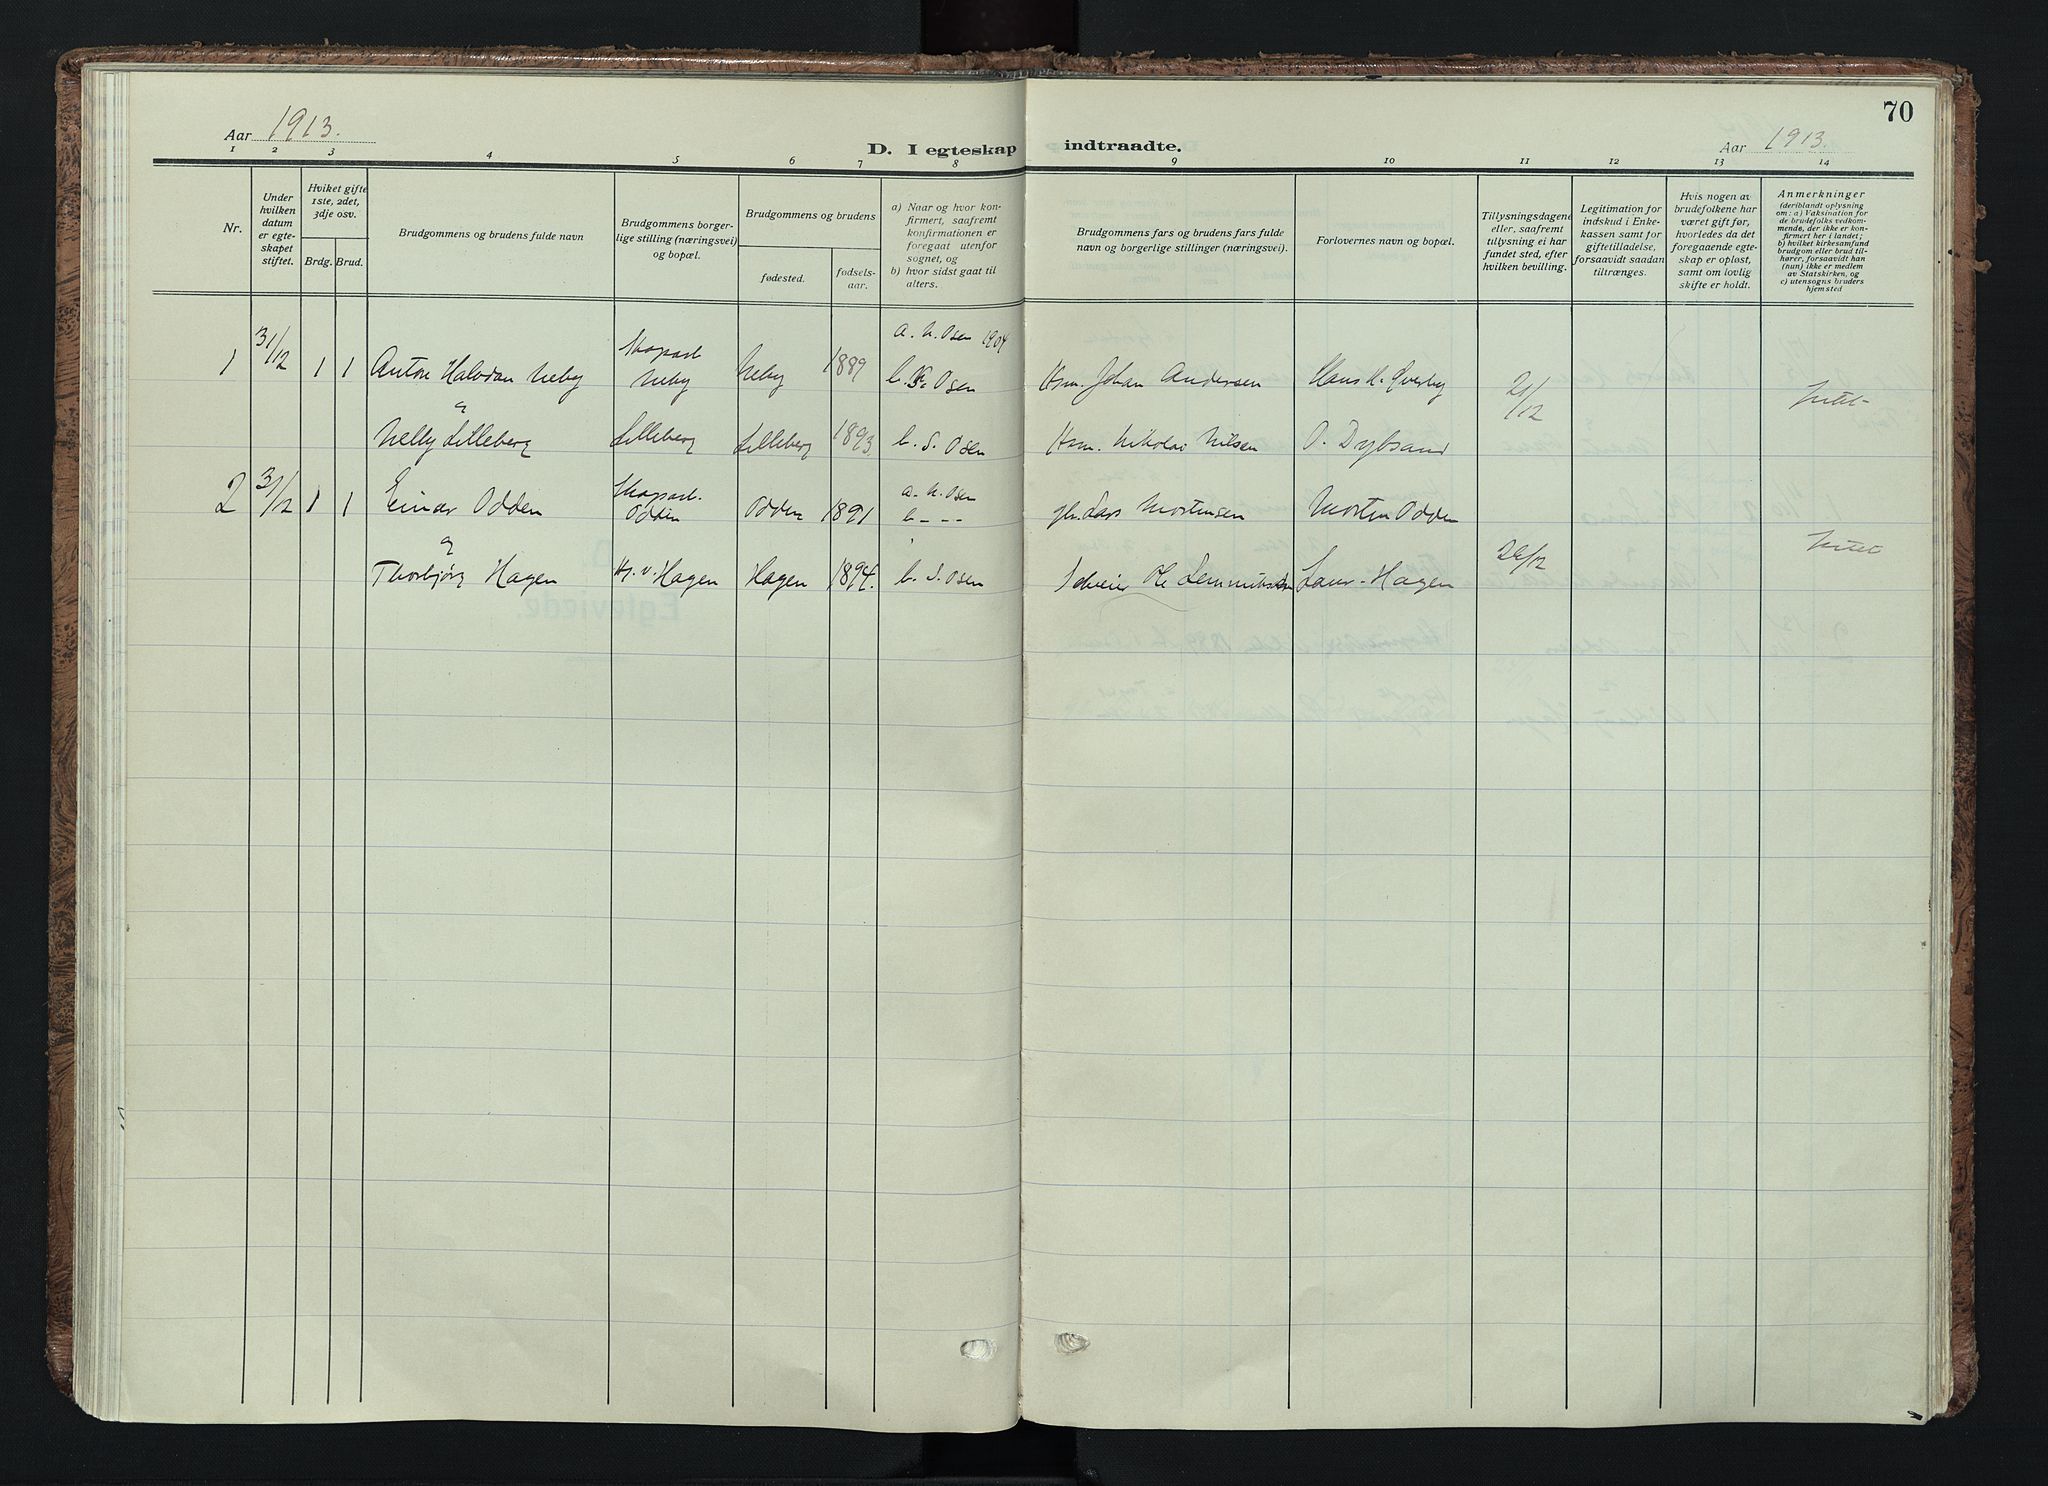 70
Aar 1913.
D. I egteskap indtraadte.
Aar 1913.
1 2 3 4 5 6 7 8 9 10 11 12 13 14
Nr.
Under
hvilken
datum
er egte-
skapet
stiftet.
Hviket gifte
1ste, 2det,
3dje osv.
Brdg. Brud.
Brudgommens og brudens fulde navn
Brudgommens borger-
lige stilling (næringsvei)
og bopæl.
Brudgommens og brudens
fødested.
fødsels-
aar.
a) Naar og hvor kon-
firmert, saafremt
konfirmationen er
foregaat utenfor
sognet, og
b) hvor sidst gaat til
alters.
Brudgommens fars og brudens fars fulde
navn og borgerlige stillinger (næringsvei).
Forlovernes navn og bopæl.
Tillysningsdagene
eller, saafremt
tillysning ei har
fundet sted, efter
hvilken bevilling.
Legitimation for
indskud i Enke-
kassen samt for
giftetilladelse,
forsaavidt saadan
tiltrænges.
Hvis nogen av
brudefolkene har
været gift før,
hvorledes da det
foregaaende egte-
skap er opløst,
samt om lovlig
skifte er holdt.
Anmerkninger
(deriblandt oplysning
om: a) Vaksination for
de brudefolks vedkom-
mende, der ikke er kon-
firmert her i landet;
b) hvilket kirkesamfund
brudgom eller brud til-
hører, forsaavidt han
(hun) ikke er medlem
av Statskirken, og
c) utensogns bruders
hjemsted
1 31/12 1 1 Anton Halvdan Neby Neby Neby 1889 a. N. Osen 1904
b. Osen Hsm. Johan Andersen Hans H. Qverby 21/12 Intet
&
Nelly Lilleberg Lilleberg Lilleberg 1893 b. S. Osen Hsm. Nikolai Nilsen O. Dybsand
2 31/12 1 1 Einar Odden Odden Odden 1891 a. N. Osen
b - - - Lars Mortensen Morten Odden
&
26/12 Intet
Thorbjørg Hagen Hagen Hagen 1894. b. S. Osen Ole Hagen